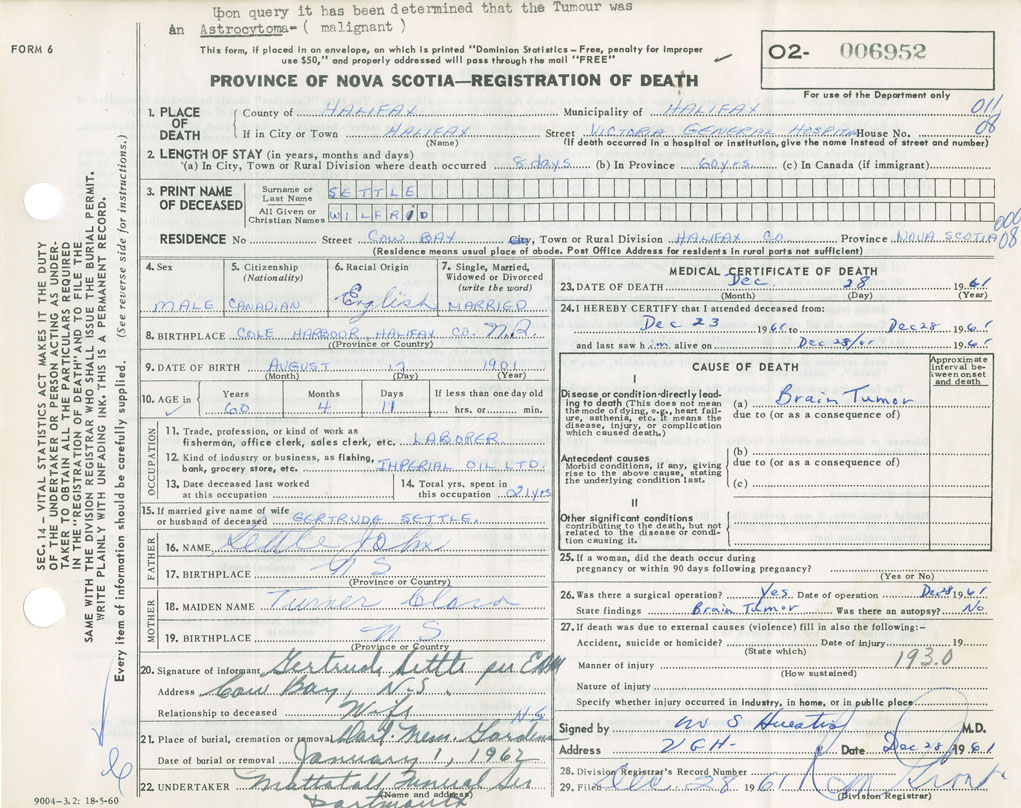 Upon query it has been determined that the Tumour was
an Astrocytoma- ( malignant )
FORM 6
This form, if placed in an envelope, on which is printed "Dominion Statistics—Free, penalty for improper
use $50," and properly addressed will pass through the mail "FREE"
O2- 006952
For use of the Department only
PROVINCE OF NOVA SCOTIA—REGISTRATION OF DEATH
SEC. 14 - VITAL STATISTICS ACT MAKES IT THE DUTY
OF THE UNDERTAKER OR PERSON ACTING AS UNDER-
TAKER TO OBTAIN ALL THE PARTICULARS REQUIRED
IN THE "REGISTRATION OF DEATH" AND TO FILE THE
SAME WITH THE DIVISION REGISTRAR WHO SHALL ISSUE THE BURIAL PERMIT.
WRITE PLAINLY WITH UNFADING INK. THIS IS A PERMANENT RECORD.
Every item of information should be carefully supplied. (See reverse side for instructions.)
1. PLACE OF DEATH
County of HALIFAX Municipality of HALIFAX 011
If in City or Town HALIFAX Street VICTORIA GENERAL HOSPITAL House No. 08
(Name) (If death occurred in a hospital or institution, give the name instead of street and number)
2. LENGTH OF STAY (in years, months and days)
(a) In City, Town or Rural Division where death occurred 8 days (b) In Province 60 yrs. (c) In Canada (if immigrant)
3. PRINT NAME OF DECEASED
Surname or Last Name SETTLE
All Given or Christian Names WILFRID
000
RESIDENCE No Street COW BAY City, Town or Rural Division HALIFAX CO Province NOVA SCOTIA 08
(Residence means usual place of abode. Post Office Address for residents in rural parts not sufficient)
4. Sex MALE
5. Citizenship (Nationality) CANADIAN
6. Racial Origin English
7. Single, Married, Widowed or Divorced (write the word) MARRIED
8. BIRTHPLACE COLE HARBOUR, HALIFAX CO.
(Province or Country)
9. DATE OF BIRTH AUGUST 17 1901
(Month) (Day) (Year)
10. AGE in Years 60 Months 4 Days 11 If less than one day old hrs. or min.
OCCUPATION
11. Trade, profession, or kind of work as
fisherman, office clerk, sales clerk, etc. LABORER
12. Kind of industry or business, as fishing,
bank, grocery store, etc. IMPERIAL OIL LTD.
13. Date deceased last worked
at this occupation
14. Total yrs. spent in
this occupation 21 yrs
15. If married give name of wife
or husband of deceased GERTRUDA SETTLE.
FATHER
16. NAME Settle John
17. BIRTHPLACE N S
(Province or Country)
MOTHER
18. MAIDEN NAME Turner Clara
19. BIRTHPLACE N S
(Province or Country)
20. Signature of informant Gertrude Settle per
Address Cow Bay, N.S.
Relationship to deceased Wife
N.S
21. Place of burial, cremation or removal Dart. Mem. Gardens
Date of burial or removal January 1, 1962
22. UNDERTAKER Mattatall Funeral Ser
(Name and address)
Dartmouth
9004-3.2: 18-5-60
MEDICAL CERTIFICATE OF DEATH
23. DATE OF DEATH Dec. 28 1961
(Month) (Day) (Year)
24. I HEREBY CERTIFY that I attended deceased from:
Dec 23 1961 to Dec 28 1961
and last saw him alive on Dec 28/61 1961
CAUSE OF DEATH
Approximate interval between onset and death
I
Disease or condition directly lead-
ing to death (This does not mean
the mode of dying, e.g., heart fail-
ure, asthenia, etc. It means the
disease, injury, or complication
which caused death.)
(a) Brain Tumor
due to (or as a consequence of)
Antecedent causes
Morbid conditions, if any, giving
rise to the above cause, stating
the underlying condition last.
(b)
due to (or as a consequence of)
(c)
II
Other significant conditions
contributing to the death, but not
related to the disease or condi-
tion causing it.
25. If a woman, did the death occur during
pregnancy or within 90 days following pregnancy?
(Yes or No)
26. Was there a surgical operation? Yes. Date of operation Dec 28 1961
State findings Brain Tumor Was there an autopsy? No
27. If death was due to external causes (violence) fill in also the following:—
Accident, suicide or homicide? Date of injury 19
(State which)
193.0
Manner of injury
(How sustained)
Nature of injury
Specify whether injury occurred in industry, in home, or in public place
Signed by W S Huestis M.D.
Address VGH- Date Dec 28 1961
28. Division Registrar's Record Number
29. Filed Dec. 28 1961
(Division Registrar)